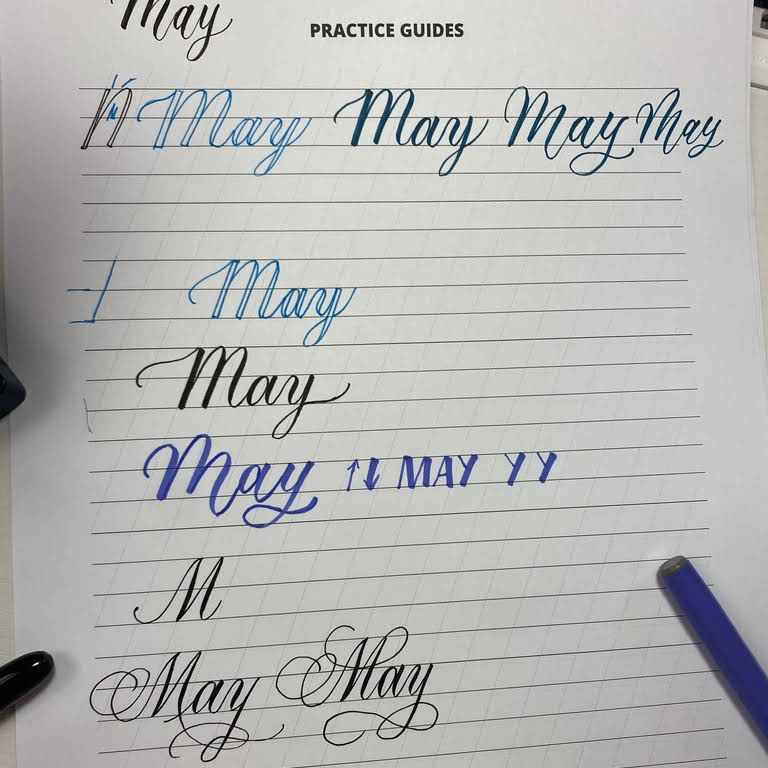 May
PRACTICE GUIDES
M May May May May
May
May
May ↑↓ MAY Y Y
M
May May